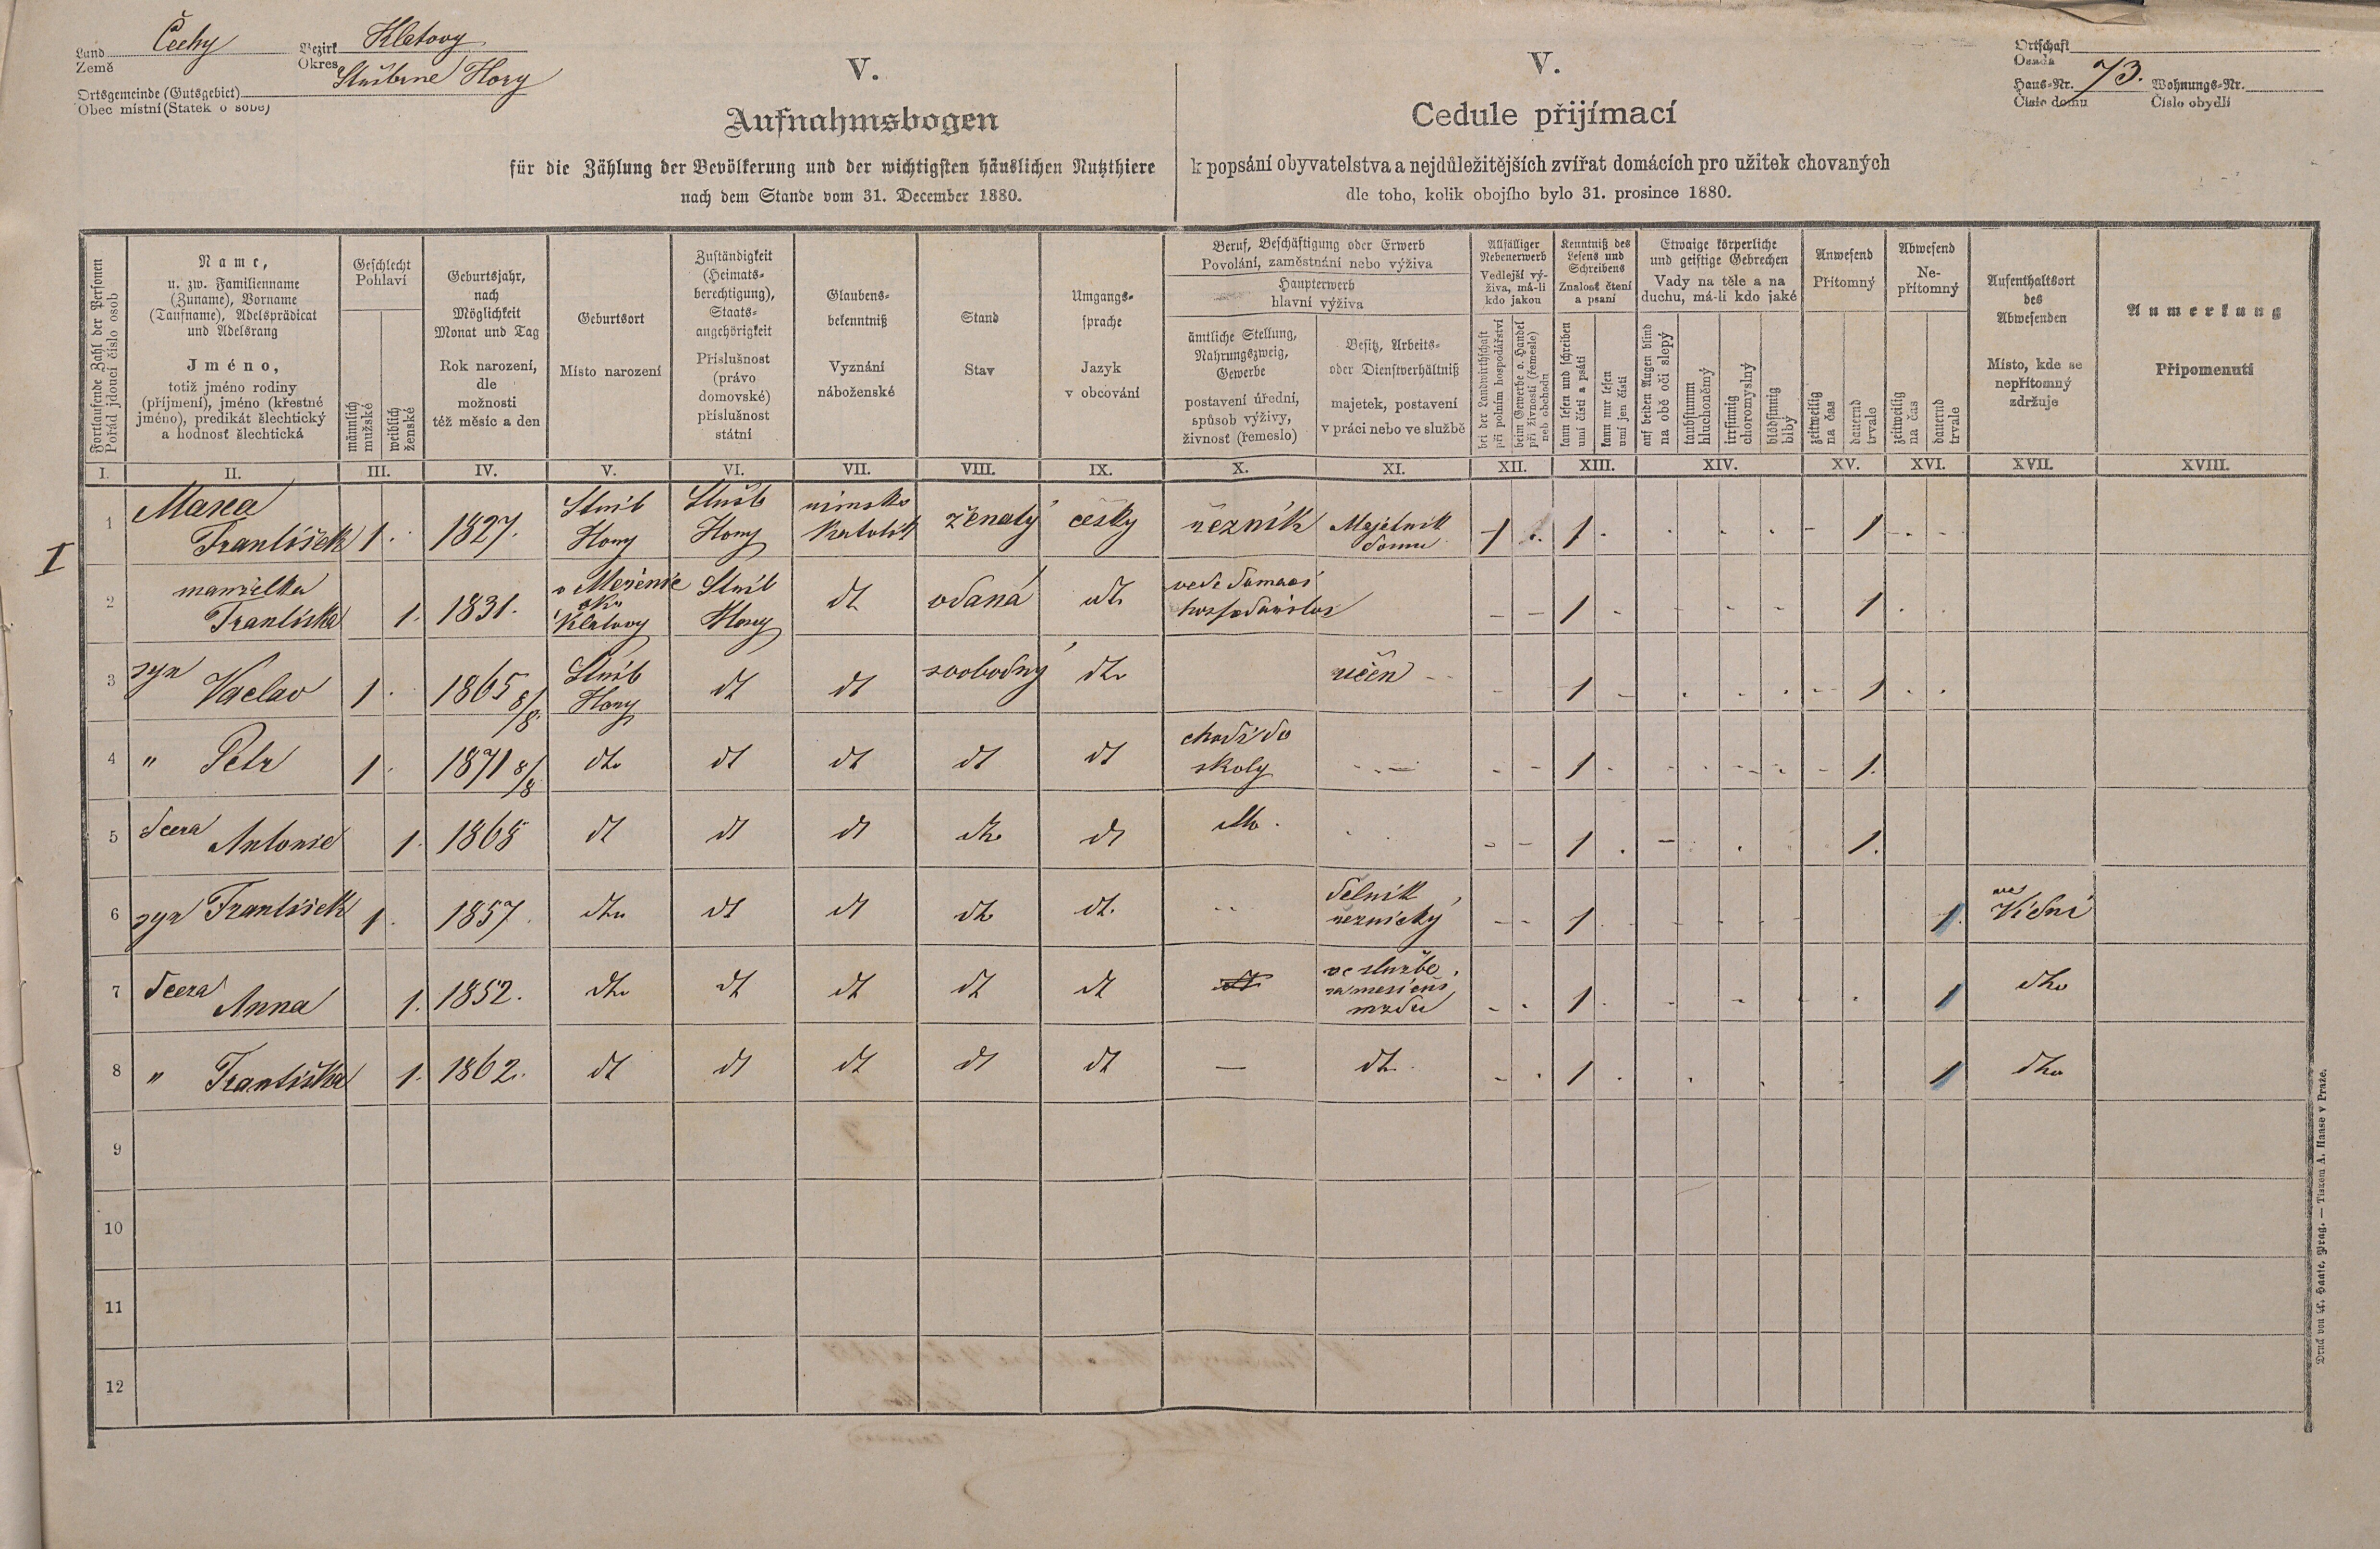 Land Čechy Bezirk Klatovy
Země Okres
Ortsgemeinde (Gutsgebiet) Hory
Obec místní (Statek o sobě)
V.
Aufnahmsbogen
für die Zählung der Bevölkerung und der wichtigsten häuslichen Nutzthiere
nach dem Stande vom 31. December 1880.
V.
Cedule přijímací
k popsání obyvatelstva a nejdůležitějších zvířat domácích pro užitek chovaných
dle toho, kolik obojího bylo 31. prosince 1880.
Ortschaft
Osada
Haus-Nr. 73. Wohnungs-Nr.
Číslo domu Číslo obydlí
Fortlaufende Zahl der Personen
Pořád jdoucí číslo osob
Name,
u. zw. Familienname
(Zuname), Vorname
(Taufname), Adelsprädicat
und Adelsrang
Jméno,
totiž jméno rodiny
(příjmení), jméno (křestné
jméno), predikát šlechtický
a hodnost šlechtická
Geschlecht
Pohlaví
männlich
mužské
weiblich
ženské
Geburtsjahr,
nach
Möglichkeit
Monat und Tag
Rok narození,
dle
možnosti
též měsíc a den
Geburtsort
Místo narození
Zuständigkeit
(Heimats-
berechtigung),
Staats-
angehörigkeit
Příslušnost
(právo
domovské)
příslušnost
státní
Glaubens-
bekenntniß
Vyznání
náboženské
Stand
Stav
Umgangs-
sprache
Jazyk
v obcování
Beruf, Beschäftigung oder Erwerb
Povolání, zaměstnání nebo výživa
Haupterwerb
hlavní výživa
ämtliche Stellung,
Nahrungszweig,
Gewerbe
postavení úřední,
spůsob výživy,
živnost (řemeslo)
Besitz, Arbeits-
oder Dienstverhältniß
majetek, postavení
v práci nebo ve službě
Allfälliger
Nebenerwerb
Vedlejší vý-
živa, má-li
kdo jakou
bei der Landwirthschaft
při polním hospodářství
beim Gewerbe o. Handel
při živnosti (řemesle)
neb obchodu
Kenntniß des
Lesens und
Schreibens
Znalost čtení
a psaní
kann lesen und schreiben
umí čísti a psáti
kann nur lesen
umí jen čísti
Etwaige körperliche
und geistige Gebrechen
Vady na těle a na
duchu, má-li kdo jaké
auf beiden Augen blind
na obě oči slepý
taubstumm
hluchoněmý
irrsinnig
choromyslný
blödsinnig
blbý
Anwesend
Přítomný
zeitweilig
na čas
dauernd
trvale
Abwesend
Ne-
přítomný
zeitweilig
na čas
dauernd
trvale
Aufenthaltsort
des
Abwesenden
Místo, kde se
nepřítomný
zdržuje
Anmerkung
Připomenutí
I. II. III. IV. V. VI. VII. VIII. IX. X. XI. XII. XIII. XIV. XV. XVI. XVII. XVIII.
I
1 František 1. 1827. Hory Hory Katolík ženatý česky řezník Majetník domu 1 1 1
2 manželka Františka 1. 1831. Klatovy Hory dt odaná dt 1 1.
3 syn Vaclav 1 1865 8/8 Hory dt dt svobodný dto učen 1 1
4 " Petr 1 1871 8/8 dto dt dt dt dt chodí do skoly 1 1.
5 dcera Antonie 1. 1868 dt dt dt dto dt dto 1 1.
6 syn František 1 1857 dto dt dt dto dt. delník řeznický 1 1 ve Vídni
7 dcera Anna 1. 1852. dto dt dt dt dt ve službě za mesíční mzdu 1 1 dto
8 " Františka 1. 1862. dt dt dt dt dt — dt. 1 1 dto
9
10
11
12
Druck von A. Haase, Prag. — Tiskem A. Haase v Praze.